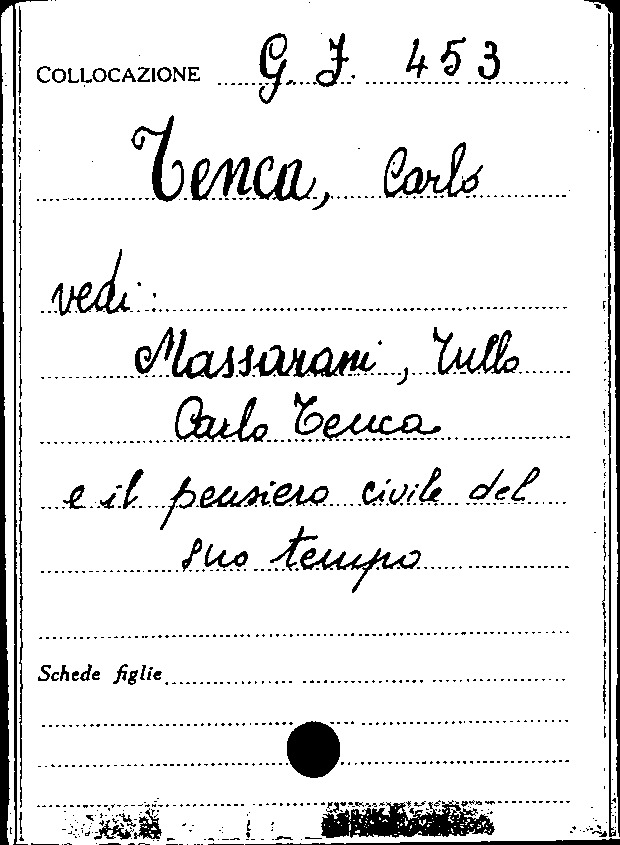 COLLOCAZIONE G. J. 453
Tenca, Carlo
vedi:
Massarani, Tullo
Carlo Tenca
e il pensiero civile del
suo tempo
Schede figlie